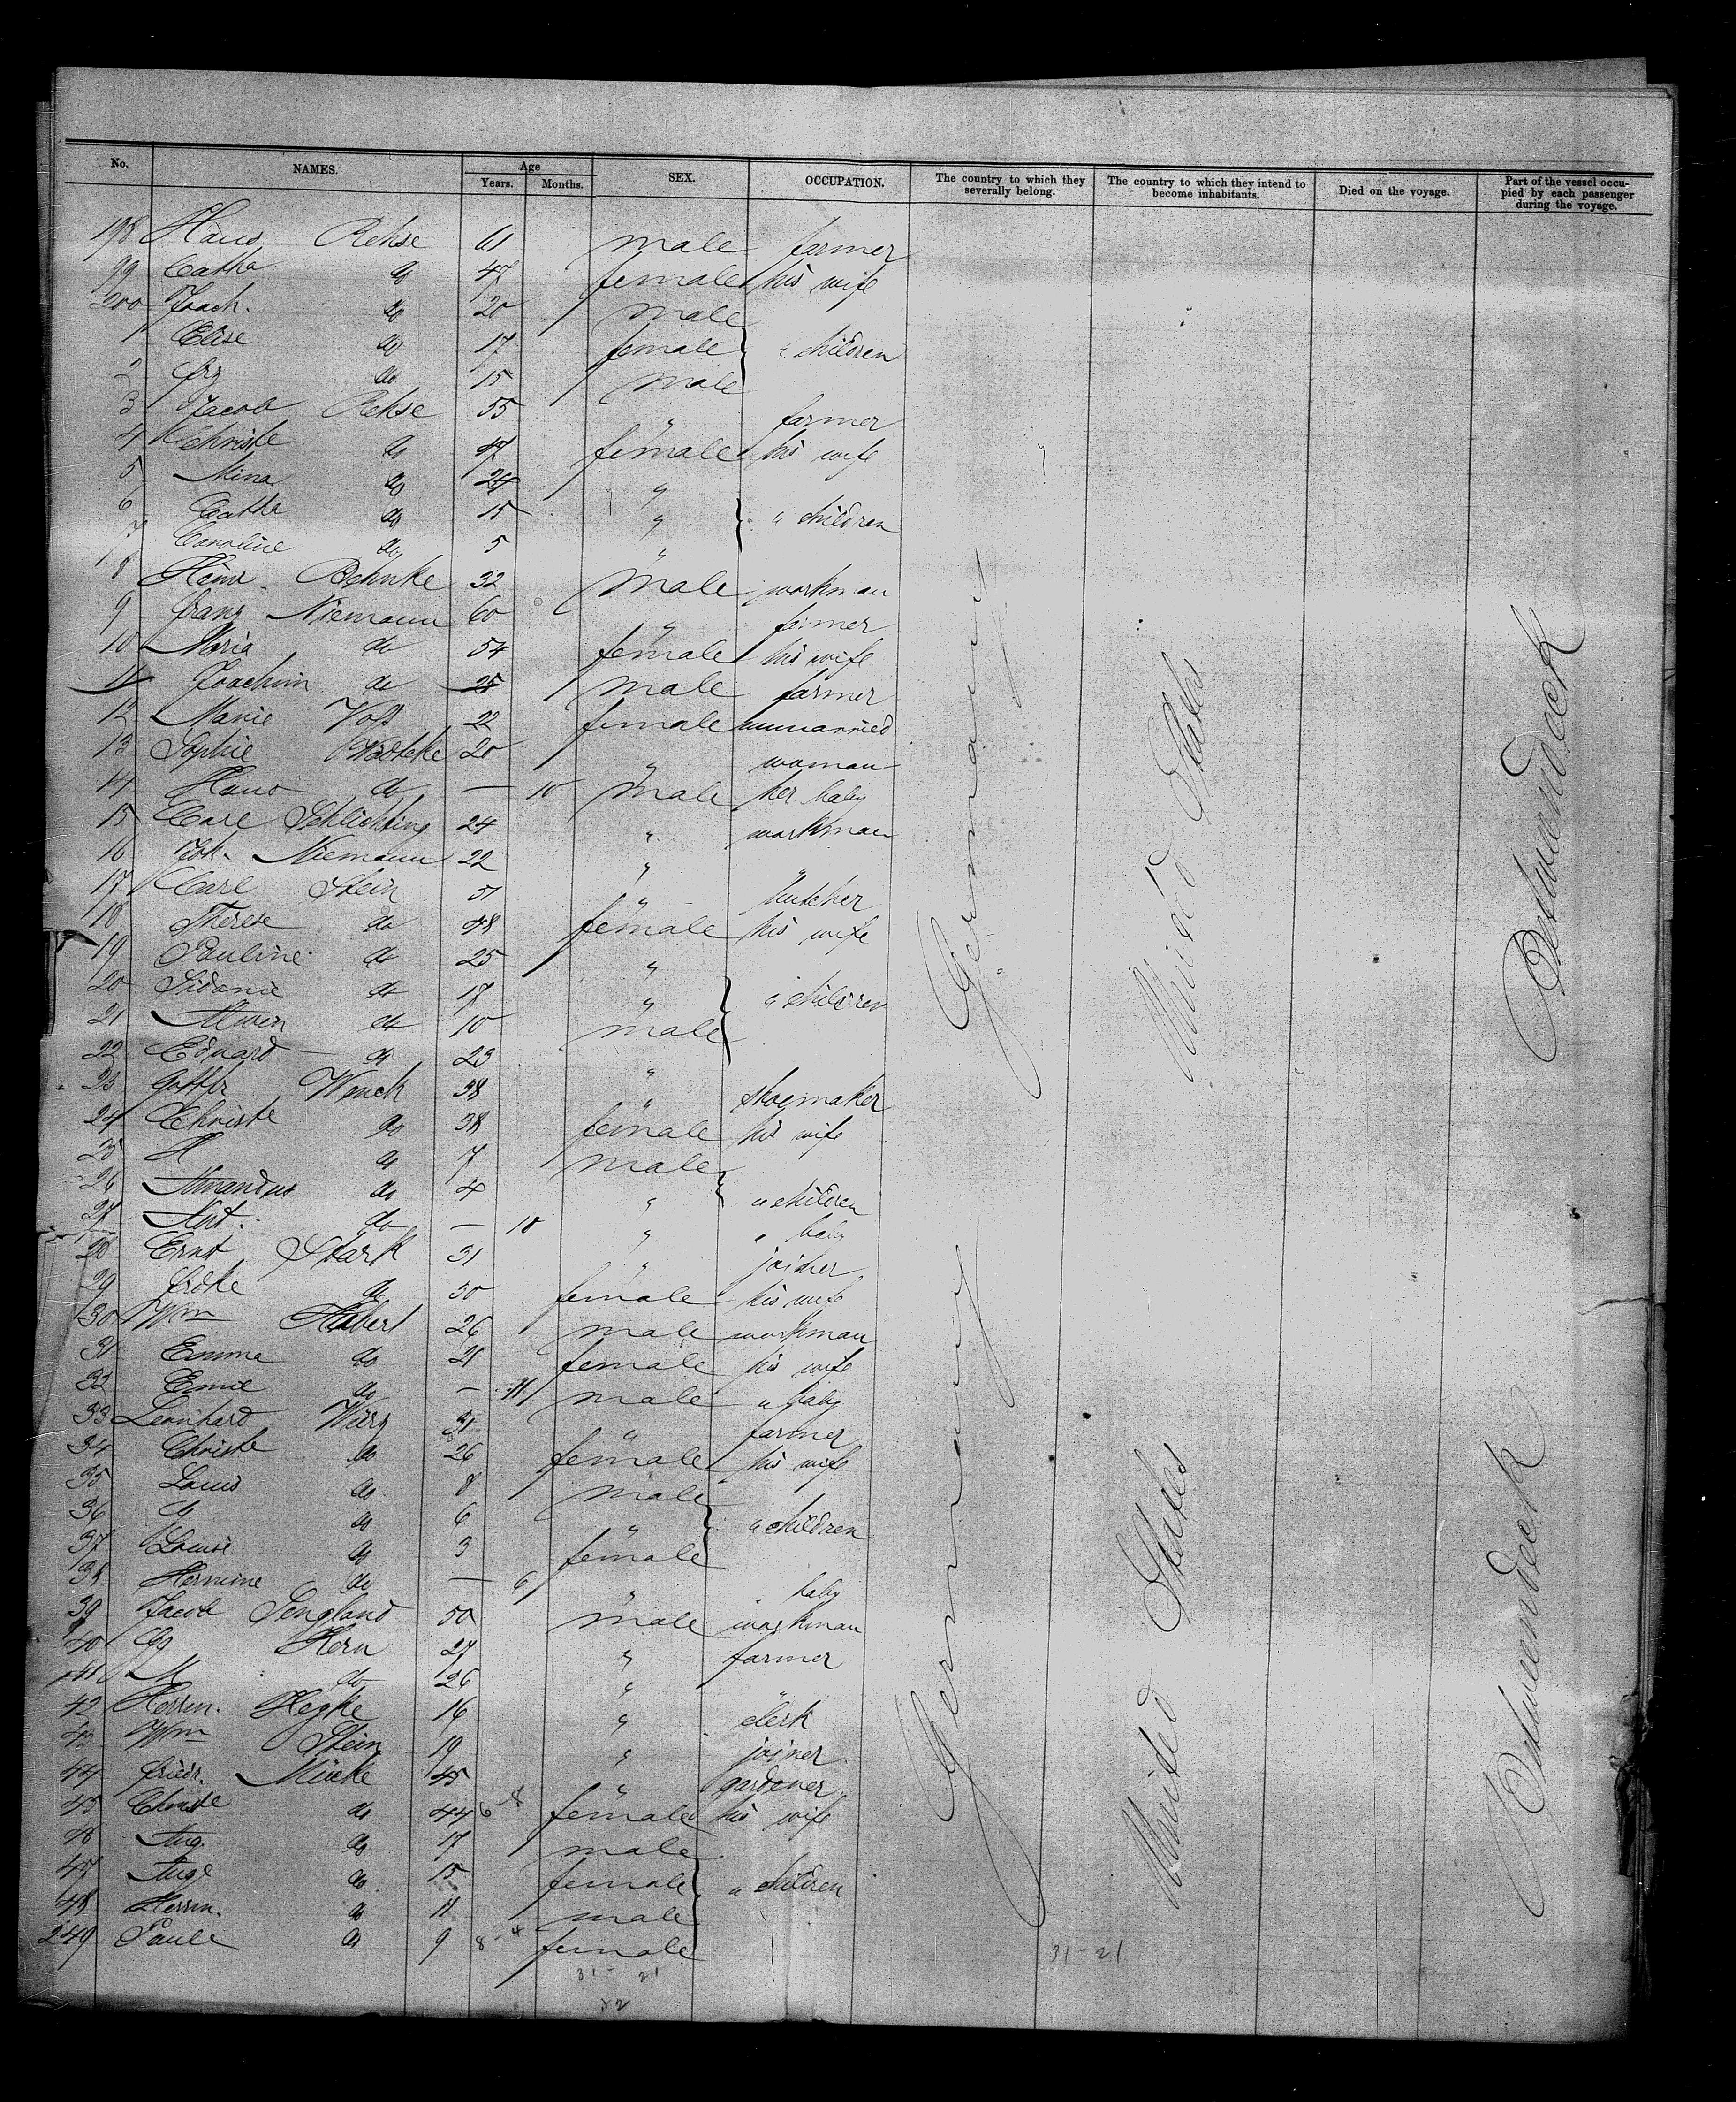 No. NAMES. Age Years. Months. SEX. OCCUPATION. The country to which they severally belong. The country to which they intend to become inhabitants. Died on the voyage. Part of the vessel occupied by each passenger during the voyage.
198 Hans Rehse 61 male farmer
99 Catha do 47 female his wife
200 Joach. do 20 male
1 Elise do 17 female " children
2 Frz do 15 male
3 Jacob Rehse 55 " farmer
4 Christe do 47 female his wife
5 Mina do 24 "
6 Catha do 15 " " children
7 Caroline do 5 "
8 Heinr. Behnke 32 male workman
9 Franz Niemann 60 " farmer
10 Maria do 54 female his wife
11 Joachim do 25 male farmer
12 Marie Voß 22 female unmarried
13 Sophie 20 " woman
14 Hans do — 10 male her baby
15 Carl Schlichting 24 " workman
16 Joh. Niemann 22 " "
17 Carl Stein 51 " butcher
18 Therese do 48 female his wife
19 Pauline do 25 "
20 Sidonie do 17 " " children
21 do 10 male
22 Eduard do 23 "
23 Gottfr 38 " shoemaker
24 Christe do 38 female his wife
25 do 7 male
26 Amandus do 4 " " children
27 do — 10 " " baby
28 Ernst Stark 31 " joiner
29 Frdke do 30 female his wife
30 Wm 26 male workman
31 Emma do 21 female his wife
32 Emil do — 11 male " baby
33 Leonhard 31 " farmer
34 Christe do 26 female his wife
35 Louis do 8 male
36 do 6 " " children
37 Louise do 3 female
38 Hermine do — 6 " " baby
39 Jacob 50 male workman
40 Gg Kern 27 " farmer
41 M do 26 " "
42 Herrm. 16 " clerk
43 Wm Stein 19 " joiner
44 Friedr. Mücke 45 " gardener
45 Christe do 44 6-8 female his wife
46 Aug. do 17 male
47 Auge do 15 female " children
48 Herrm. do 11 male
249 Paule do 9 8-4 female
31-21
31-21
Germany United States Betweendeck
Germany United States Betweendeck